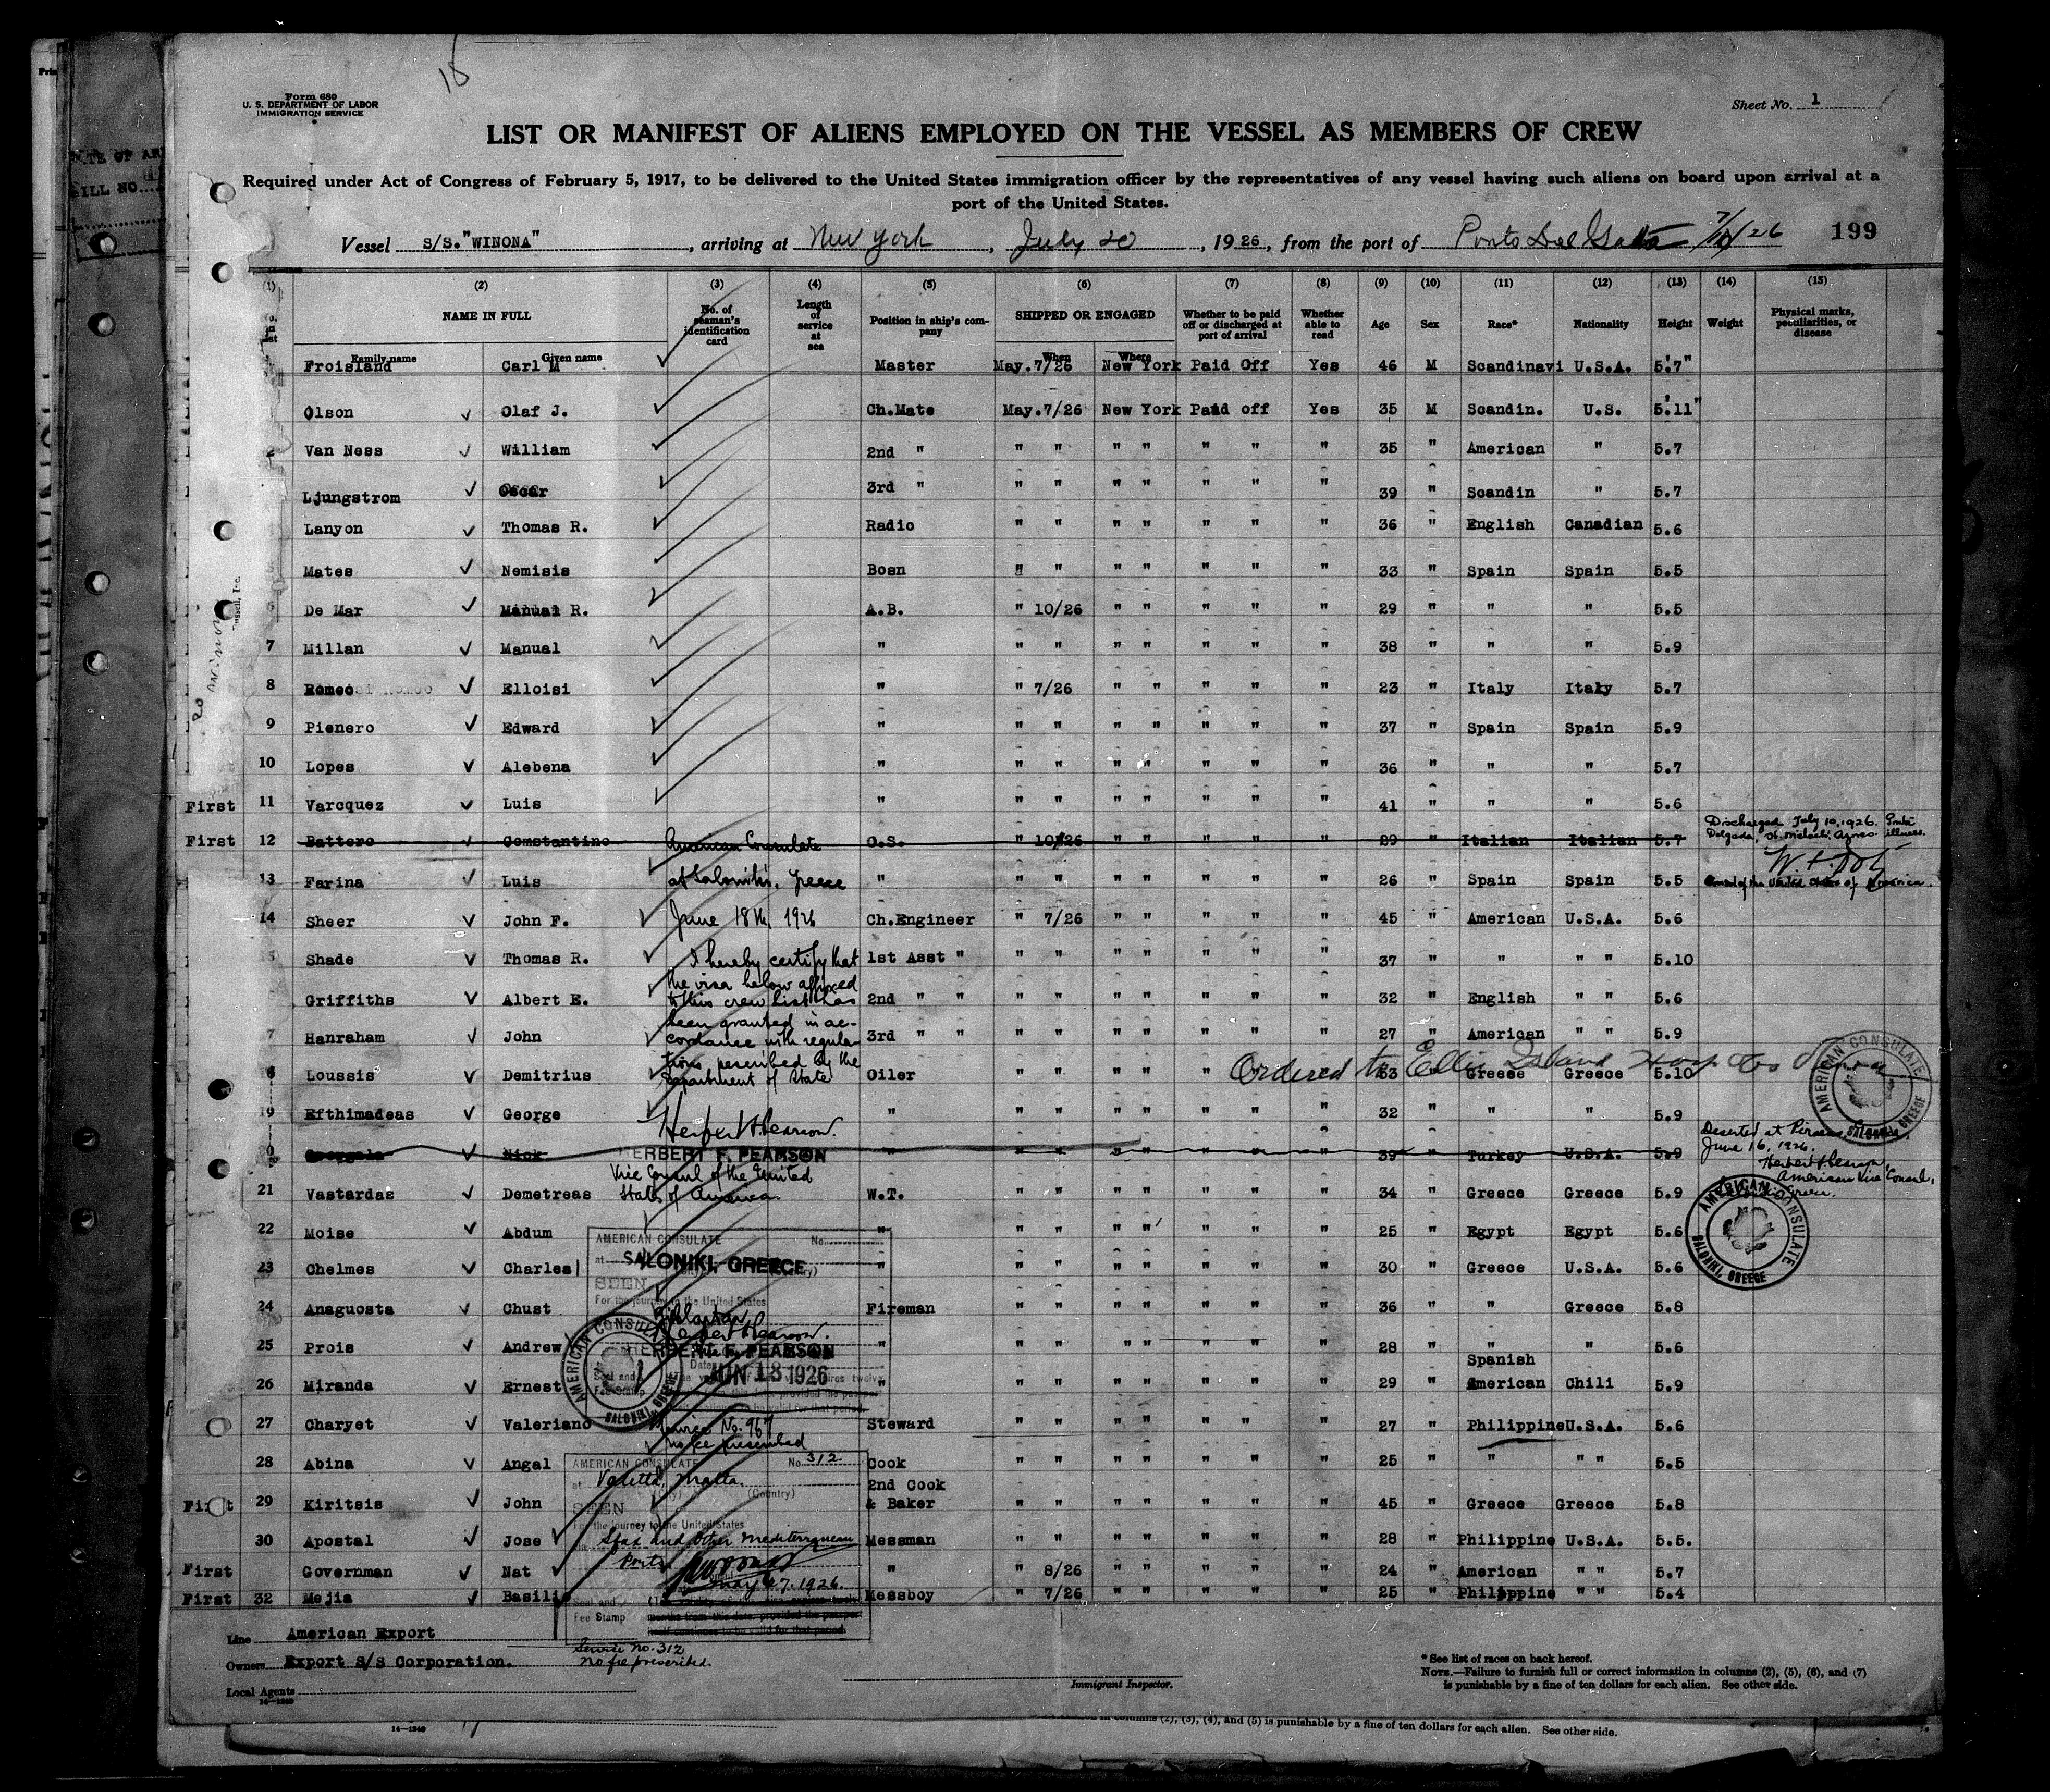 Form 680
U. S. DEPARTMENT OF LABOR
IMMIGRATION SERVICE
Sheet No. 1
LIST OR MANIFEST OF ALIENS EMPLOYED ON THE VESSEL AS MEMBERS OF CREW
Required under Act of Congress of February 5, 1917, to be delivered to the United States immigration officer by the representatives of any vessel having such aliens on board upon arrival at a
port of the United States.
Vessel S/S."WINONA", arriving at New York, July 20, 1926, from the port of 199
(1) (2) (3) (4) (5) (6) (7) (8) (9) (10) (11) (12) (13) (14) (15)
NAME IN FULL No. of seaman's identification card Length of service at sea Position in ship's company SHIPPED OR ENGAGED Whether to be paid off or discharged at port of arrival Whether able to read Age Sex Race* Nationality Height Weight Physical marks, peculiarities, or disease
Family name Given name When Where
Froisland Carl M Master May.7/26 New York Paid Off Yes 46 M Scandinavi U.S.A. 5.'7"
Olson Olaf J. Ch.Mate May.7/26 New York Paid off Yes 35 M Scandin. U.S. 5.'11"
2 Van Ness William 2nd " " " " " " " " 35 " American " 5.7
Ljungstrom Oscar 3rd " " " " " " " " 39 " Scandin " 5.7
Lanyon Thomas R. Radio " " " " " " " 36 " English Canadian 5.6
Mates Nemisis Bosn " " " " " " " 33 " Spain Spain 5.5
De Mar Manual R. A.B. " 10/26 " " " " " 29 " " " 5.5
7 Millan Manual " " " " " " " " 38 " " " 5.9
8 Romeo Elloisi " " 7/26 " " " " " 23 " Italy Italy 5.7
9 Pienero Edward " " " " " " " " 37 " Spain Spain 5.9
10 Lopes Alebena " " " " " " " " 36 " " " 5.7
First 11 Varcquez Luis " " " " " " " " 41 " " " 5.6
Discharged July 10, 1926. Ponta
Delgada, St. Michael's Azores illness.
First 12 Battero Constantino American Consulate O.S. " 10/26 " " " " " 29 " Italian Italian 5.7
13 Farina Luis at Saloniki, Greece " " " " " " " " 26 " Spain Spain 5.5
Consul of the United States of America.
14 Sheer John F. June 18th 1926 Ch.Engineer " 7/26 " " " " " 45 " American U.S.A. 5.6
Shade Thomas R. I hereby certify that 1st Asst " " " " " " " " 37 " " " " 5.10
the visa below affixed
Griffiths Albert E. to this crew list has 2nd " " " " " " " " " 32 " English " " 5.6
been granted in ac-
7 Hanraham John cordance with regula- 3rd " " " " " " " " " 27 " American " " 5.9
Ordered to Ellis Island
tions pescribed by the
Loussis Demitrius Department of State Oiler " " " " " " " 33 " Greese Greece 5.10
AMERICAN CONSULATE SALONIKI, GREECE
19 Efthimadeas George " " " " " " " " 32 " " " 5.9
Herbert F. Pearson.
Deserted at Piraeus
June 16, 1926.
20 Nick HERBERT F. PEARSON " " " " " " " " 39 " Turkey U.S.A. 5.9
Herbert F. Pearson,
American Vice Consul,
Vice Consul of the United
21 Vastardas Demetreas States of America W.T. " " " " " " " 34 " Greece Greece 5.9
AMERICAN CONSULATE SALONIKI, GREECE
22 Moise Abdum " " " " " " " " 25 " Egypt Egypt 5.6
AMERICAN CONSULATE No.
at SALONIKI, GREECE
23 Chelmes Charles " " " " " " " " 30 " Greece U.S.A. 5.6
SEEN
For the journey to the United States
24 Anaguosta Chust Fireman " " " " " " " 36 " " Greece 5.8
Herbert F. Pearson.
25 Prois Andrew HERBERT F. PEARSON " " " " " " " " 28 " " " 5.6
AMERICAN CONSULATE SALONIKI, GREECE
JUN 18 1926
Spanish
26 Miranda Ernest " " " " " " " " 29 " American Chili 5.9
27 Charyet Valeriano Service No. 967 Steward " " " " " " " 27 " Philippine U.S.A. 5.6
No fee prescribed
28 Abina Angal Cook " " " " " " " 25 " " " " 5.5
AMERICAN CONSULATE No. 312
at Valetta, Malta.
(City) (Country)
2nd Cook
First 29 Kiritsis John & Baker " " " " " " " 45 " Greece Greece 5.8
SEEN
For the journey to the United States
30 Apostal Jose Messman " " " " " " " 28 " Philippine U.S.A. 5.5.
Sfax and other Mediterranean
Ports
First Governman Nat " " 8/26 " " " " " 24 " American " " 5.7
May 27, 1926.
First 32 Mejia Basili Messboy " 7/26 " " " " " 25 " Philippine " " 5.4
Seal and
Fee Stamp
months from this date, provided the passport
itself continues to be valid for that period.
Service No. 312
No fee prescribed.
Line American Export
Owners Export S/S Corporation.
Local Agents
14—1240
Immigrant Inspector.
* See list of races on back hereof.
NOTE.—Failure to furnish full or correct information in columns (2), (5), (6), and (7)
is punishable by a fine of ten dollars for each alien. See other side.
14—1240
(2), (3), (4), and (5) is punishable by a fine of ten dollars for each alien. See other side.